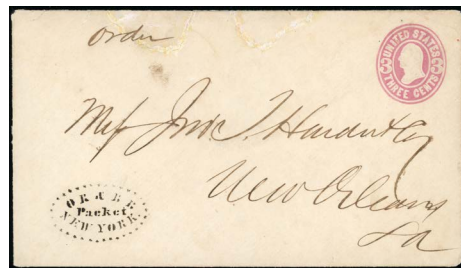 order
UNITED STATES
3 3
THREE CENTS
Mess Jno T. Hardie & Co
New Orleans
La
ORDER
Packet
NEW YORK